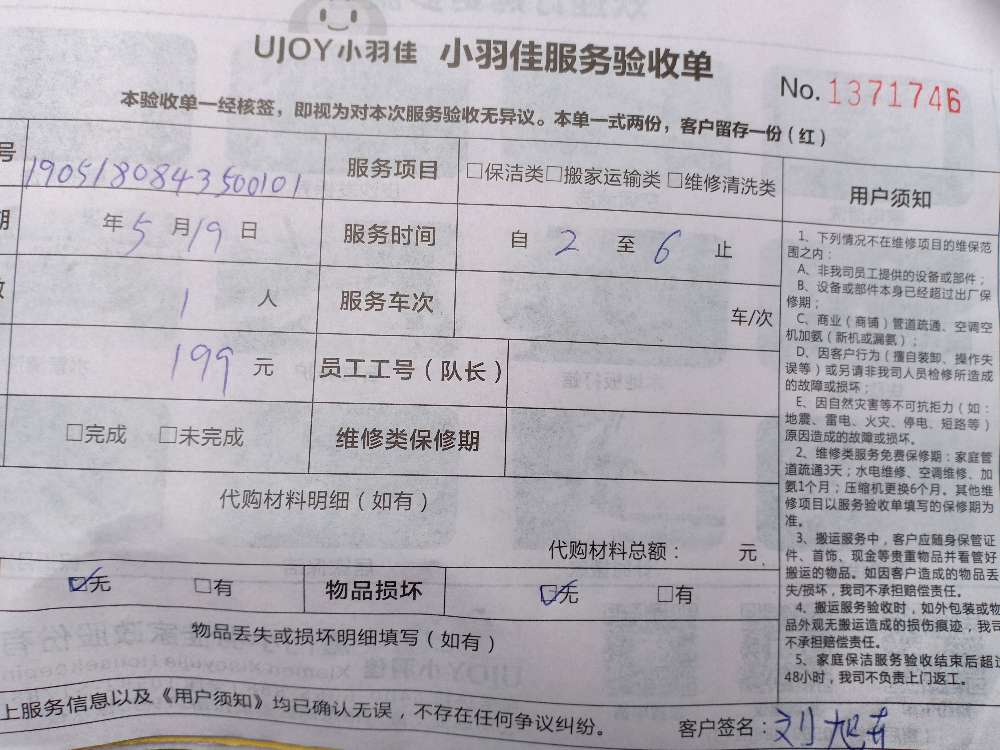 UJOY小羽佳 小羽佳服务验收单
No. 1371746
本验收单一经核签，即视为对本次服务验收无异议。本单一式两份，客户留存一份（红）
号 1905180843500101 服务项目 □保洁类□搬家运输类 □维修清洗类
期 年5月19日 服务时间 自 2 至 6 止
1 人 服务车次 车/次
199 元 员工工号（队长）
□完成 □未完成 维修类保修期
代购材料明细（如有）
代购材料总额： 元
☑无 □有 物品损坏 ☑无 □有
物品丢失或损坏明细填写（如有）
上服务信息以及《用户须知》均已确认无误，不存在任何争议纠纷。
客户签名：刘旭东
用户须知
1、下列情况不在维修项目的维保范
围之内：
A、非我司员工提供的设备或部件；
B、设备或部件本身已经超过出厂保
修期；
C、商业（商铺）管道疏通、空调空
机加氨（新机或漏氨）；
D、因客户行为（擅自装卸、操作失
误等）或另请非我司人员检修所造成
的故障或损坏；
E、因自然灾害等不可抗拒力（如：
地震、雷电、火灾、停电、短路等）
原因造成的故障或损坏。
2、维修类服务免费保修期：家庭管
道疏通3天；水电维修、空调维修、加
氨1个月；压缩机更换6个月。其他维
修项目以服务验收单填写的保修期为
准。
3、搬运服务中，客户应随身保管证
件、首饰、现金等贵重物品并看管好
搬运的物品。如因客户造成的物品丢
失/损坏，我司不承担赔偿责任。
4、搬运服务验收时，如外包装或物
品外观无搬运造成的损伤痕迹，我司
不承担赔偿责任。
5、家庭保洁服务验收结束后超过
48小时，我司不负责上门返工。